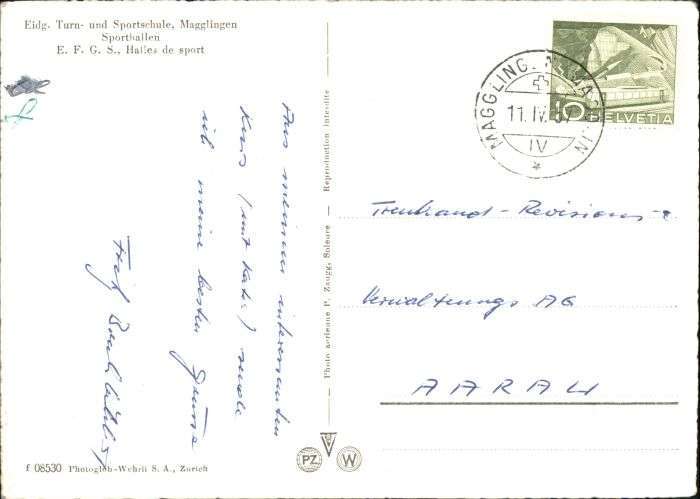 Eidg. Turn- und Sportschule, Magglingen
Sporthallen
E. F. G. S., Halles de sport
Aus meinem interessanten
Kurs (mit Kate.) sende
ich meine besten Grüsse
f 08530 Photoglob-Wehrli S. A., Zurich
Photo aerienne P. Zaugg, Soleure — Reproduction interdite
PZ
W
MAGGLING. MACOLIN
11. IV. 57
IV
10 HELVETIA
Treuhand- Revisions- &
Verwaltungs AG
AARAU